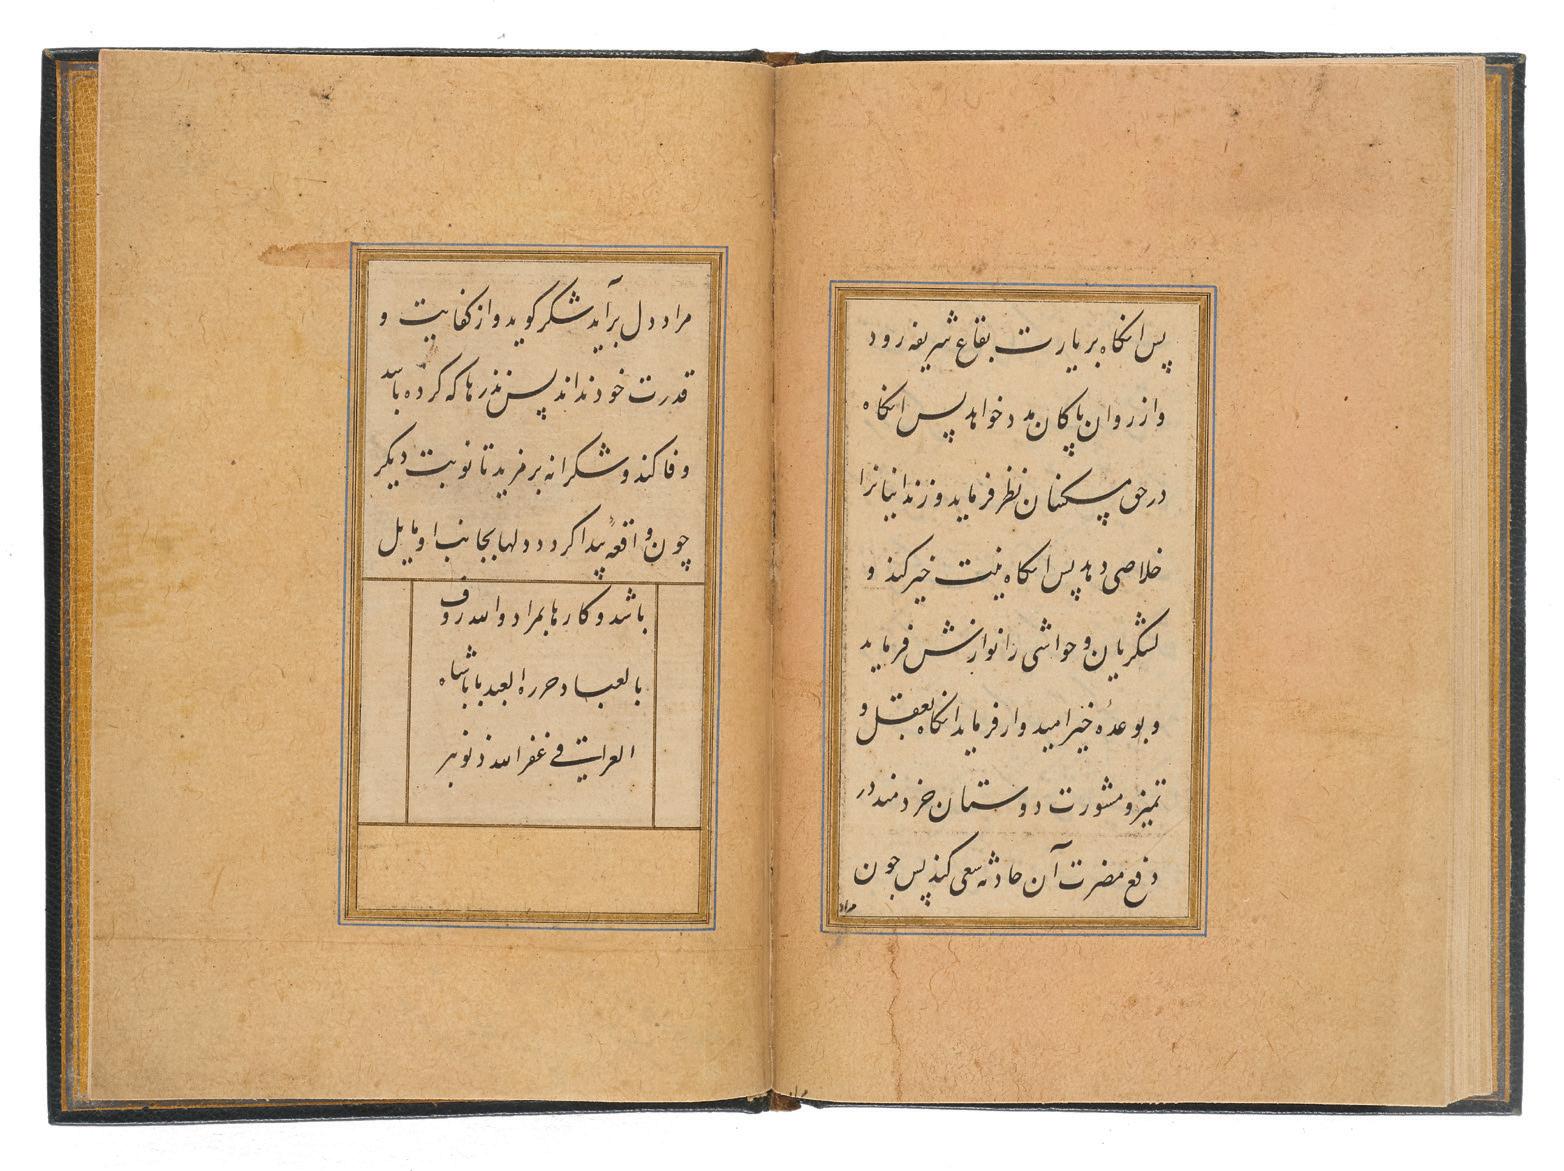 پس انکاه بزیارت بقاع شریفه رود
و از روان پاکان مدد خواهد پس انکاه
در حق مسکینان نظر فرماید و زندانیانرا
خلاصی دهد پس انکاه نیت خیر کند و
لشکریان و حواشی را نوازش فرماید
و بوعدهٔ خیر امیدوار فرماید انکاه بعقل و
تمیز و مشورت دوستان خردمند در
دفع مضرت آن حادثه سعی کند پس چون
مراد
مراد دل برآید شکر گوید و از کفایت و
قدرت خود نداند پس نذرها که کرده باشد
وفا کند و شکرانه بر مزید تا نوبت دیکر
چون واقعه پیدا کردد دلها بجانب او مایل
باشد و کارها بمراد والله رؤف
بالعباد حرره العبد باباشاه
العراقی غفر الله ذنوبه